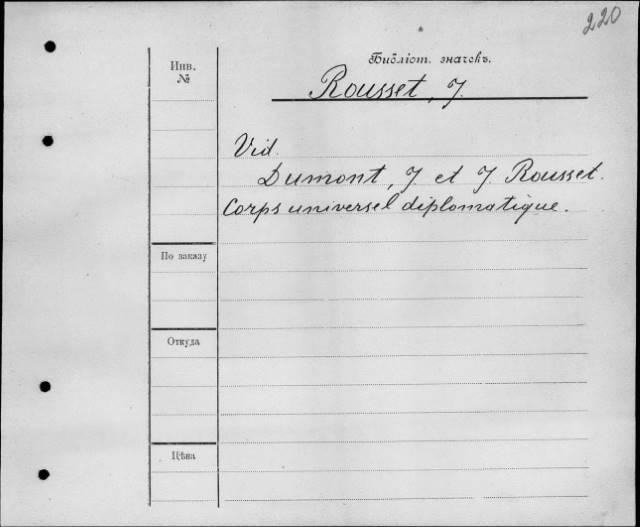 220
Библіот. значекъ.
Инв.
№
Rousset, J.
Vid.
Dumont, J et J. Rousset.
Corps universel diplomatique.
По заказу
Откуда
Цѣна